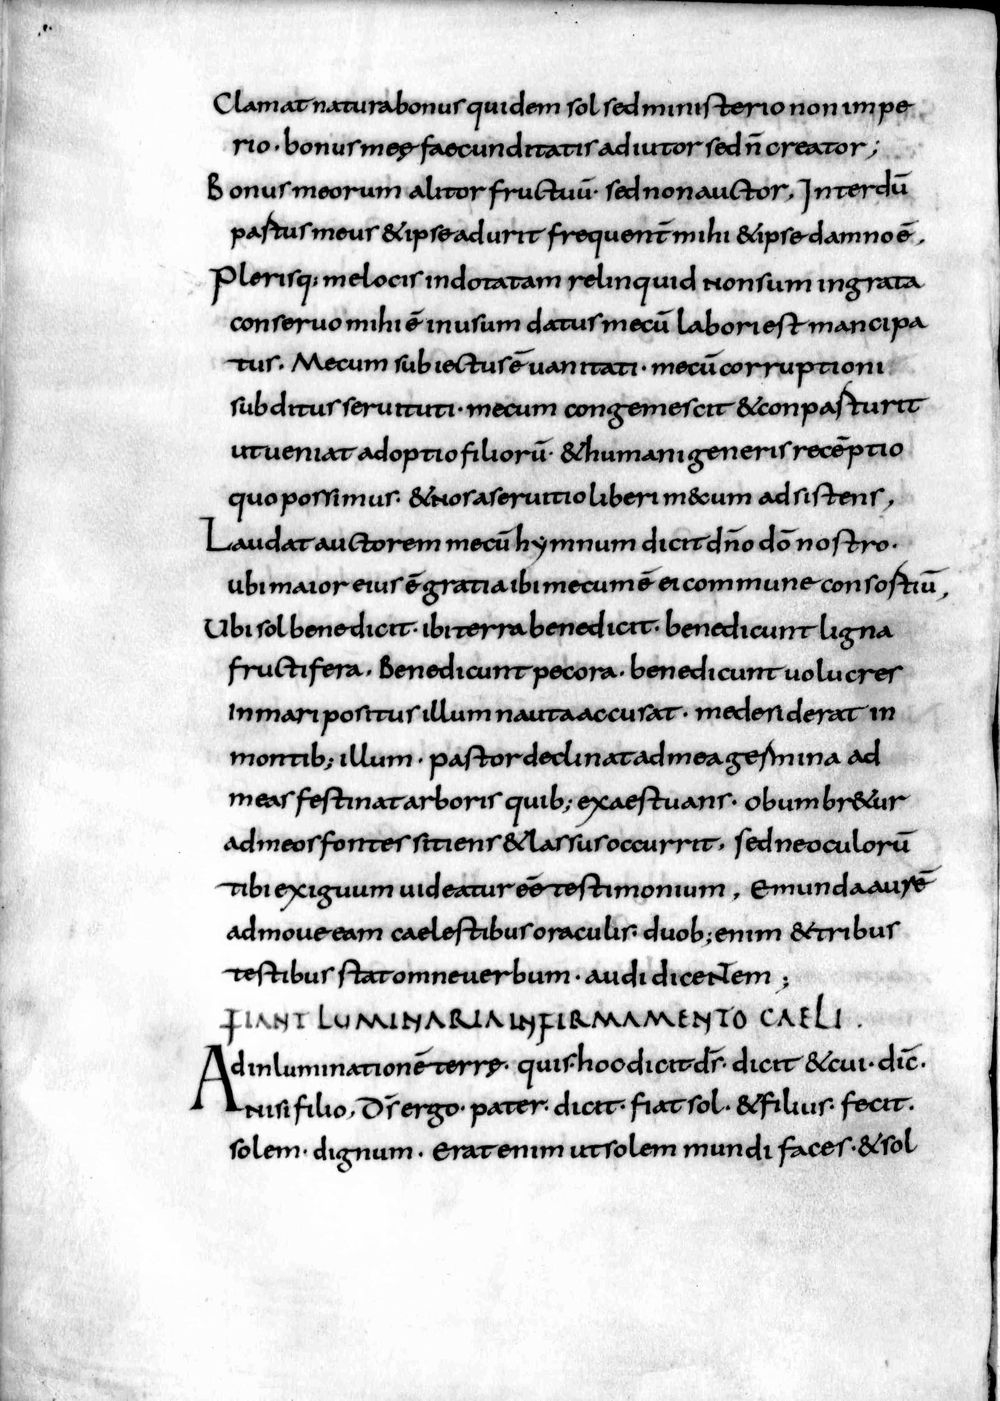 Clamat natura bonus quidem sol sed ministerio non impe
rio · bonus meę faecunditatis adiutor sed n̄ creator ;
Bonus meorum alitor fructuū · sed non auctor, Interdū
pastus meus & ipse adurit frequent̄ mihi & ipse damno ē,
Plerisq; me locis indotatam relinquid non sum ingrata
conseruo mihi ē in usum datus mecū labori est mancipa
tus. Mecum subiectus ē uanitati · mecū corruptioni
subditus seruituti · mecum congemescit & conpasturit
ut ueniat adoptio filiorū · & humani generis recēptio
quo possimus · & nos a seruitio liberi m&cum adsistens,
Laudat auctorem mecū hymnum dicit dn̄o dō nostro.
ubi maior eius ē gratia ibi mecum ē ei commune consostiū,
Ubi sol benedicit · ibi terra benedicit · benedicunt ligna
fructifera. Benedicunt pecora. benedicunt uolucres
In mari positus illum nauta accusat · me desiderat in
montib; illum · pastor declinat ad mea gesmina ad
meas festinat arboris quib; exaestuans · obumbr&ur
ad meos fontes sitiens & lassus occurrit, sed ne oculorū
tibi exiguum uideatur eē testimonium, Emunda aurē
admoue eam caelestibus oraculis · duob; enim & tribus
testibus stat omne uerbum · audi dicentem ;
FIANT LUMINARIA IN FIRMAMENTO CAELI .
Ad inluminationē terrę · quis · hoo dicit ds̄ · dicit & cui · dic̄ .
nisi filio, Ds̄ ergo · pater · dicit · fiat sol · & filius · fecit.
solem · dignum · Erat enim ut solem mundi faces · & sol